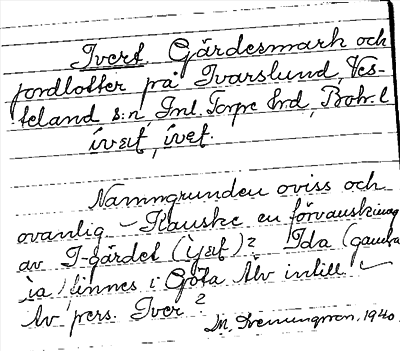 Ivert. Gärdesmark och
jordlotter på Ivarslund, Ves-
teland s:n, Inl. Torpe hrd, Boh. l
ívet, ívet.
Namngrunden oviss och
ovanlig – Kanske en förvanskning
av I-gärdet (        )? Ida (gamla
    ) finnes i Göta Älv intill –
Av pers. Iver?
1940